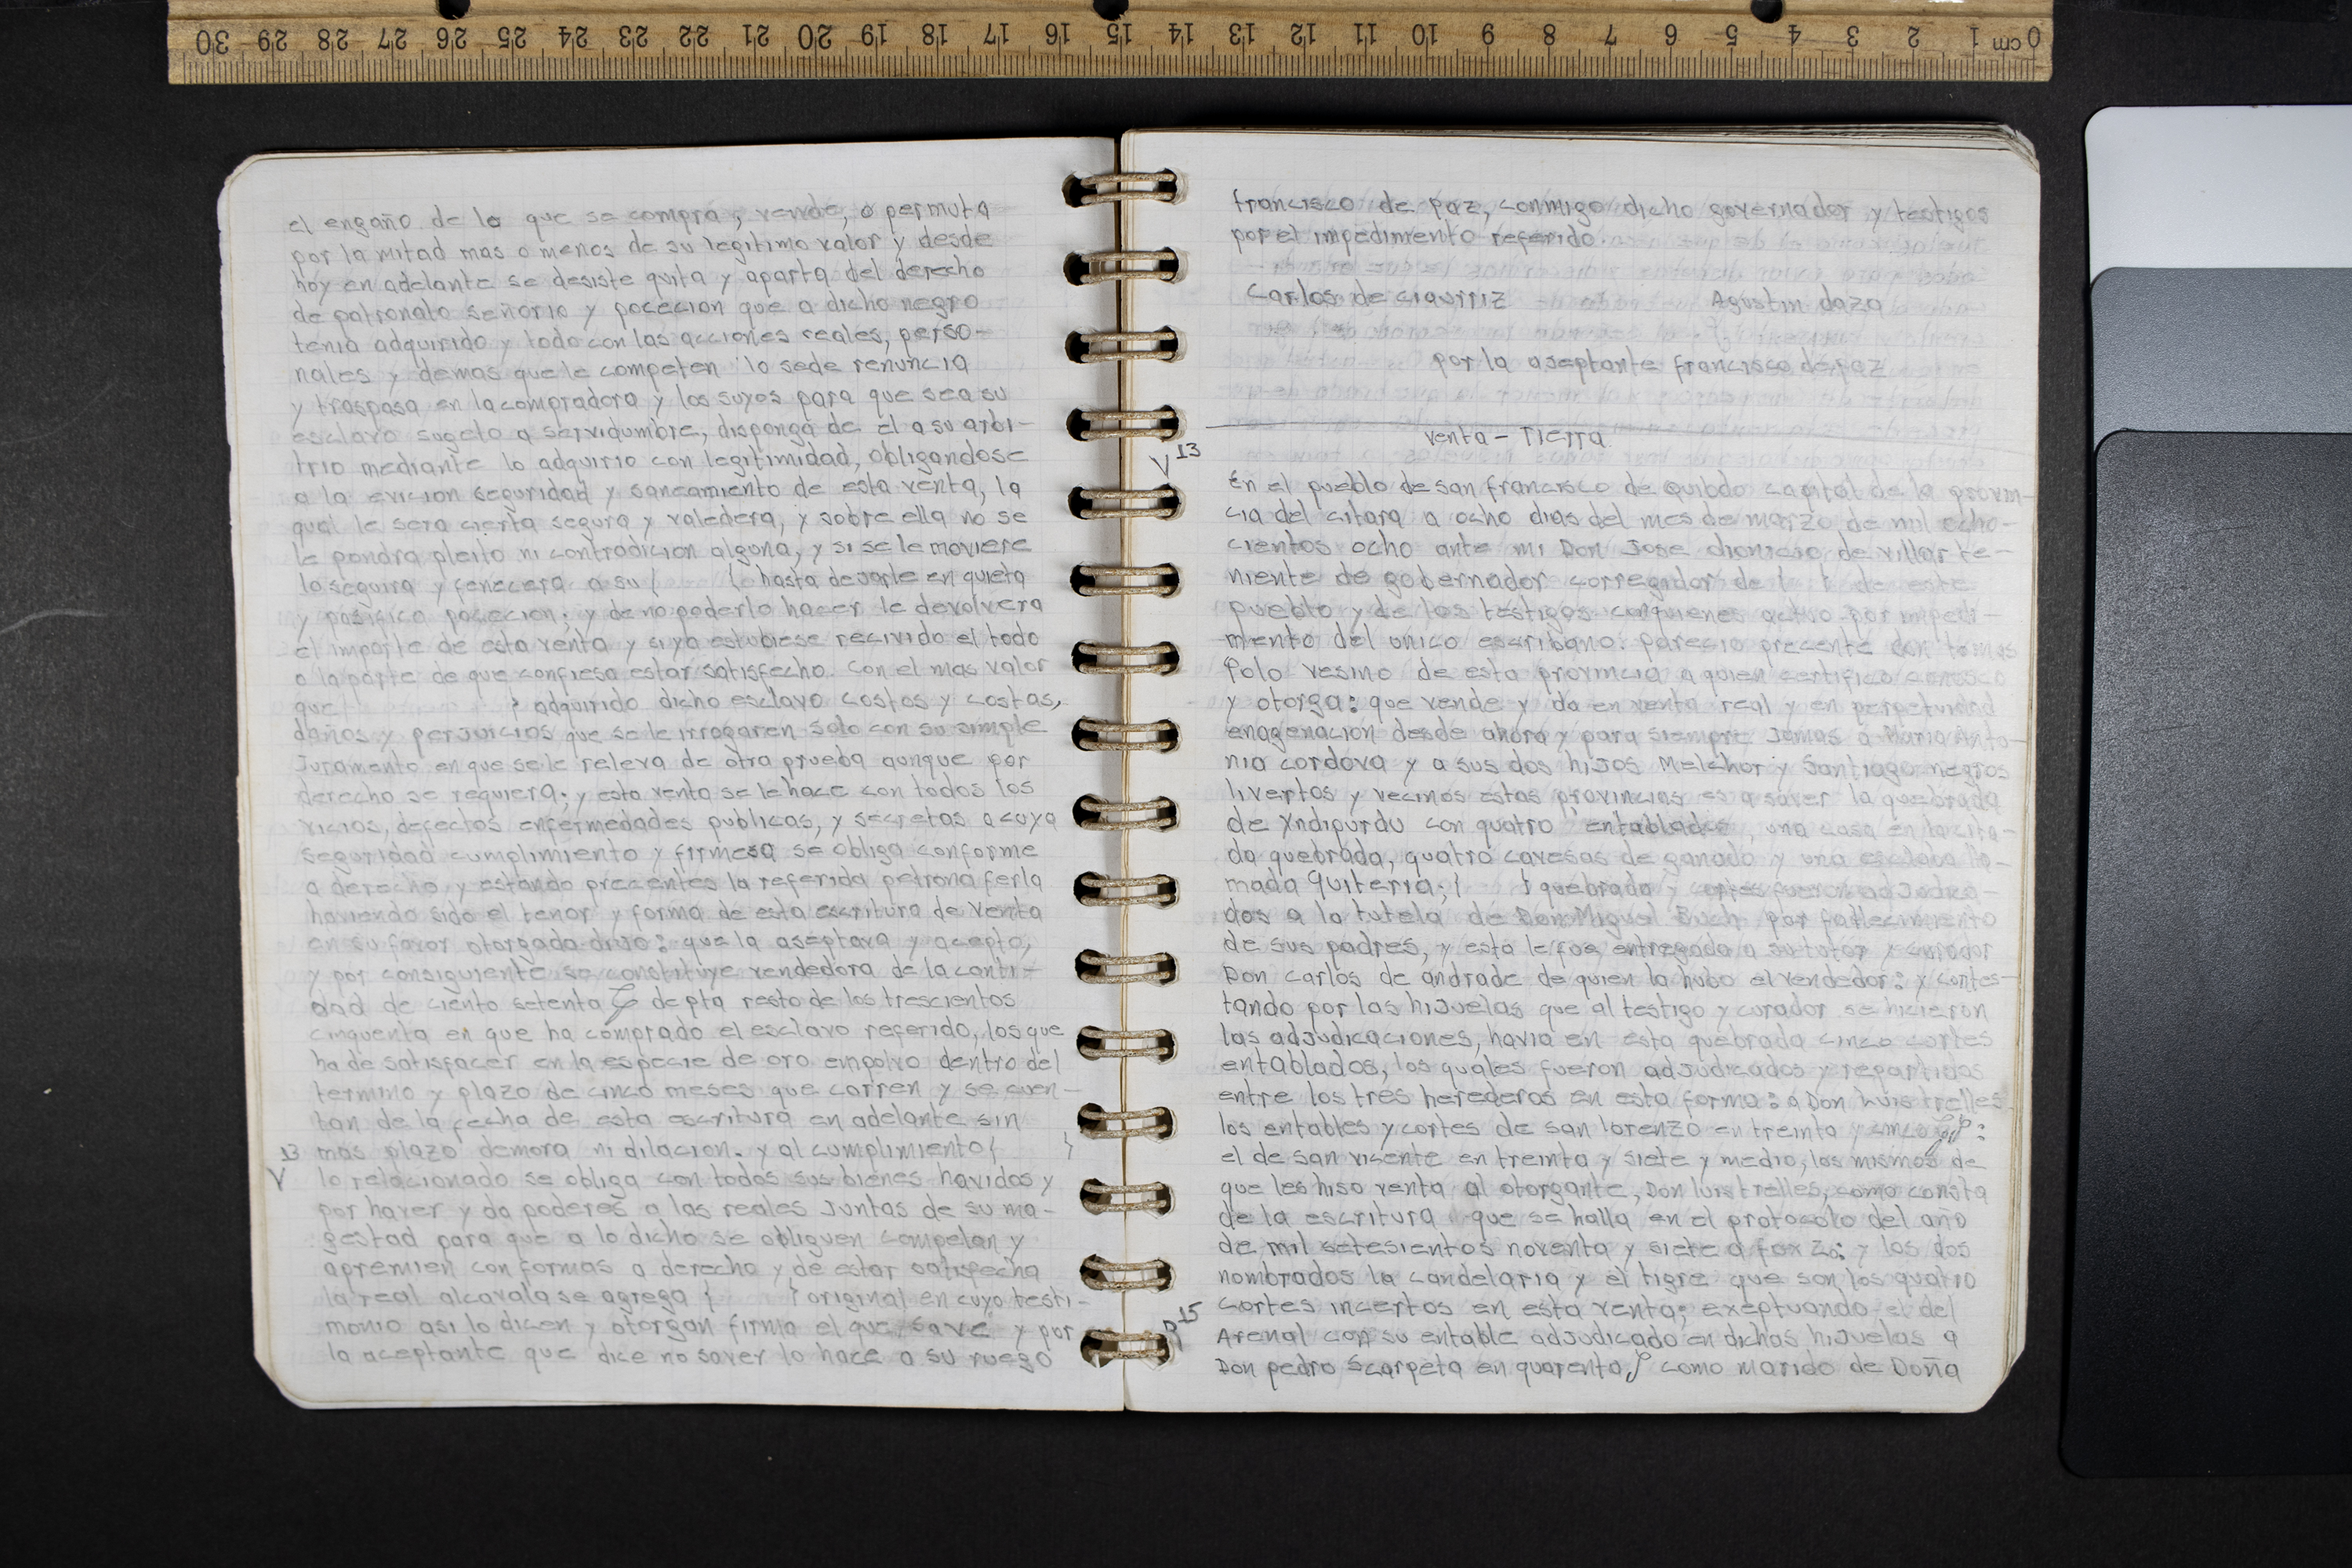 30 29 28 27 26 25 24 23 22 21 20 19 18 17 16 15 14 13 12 11 10 9 8 7 6 5 4 3 2 1 cm 0
el engaño de lo que se compra, vende, o permuta
por la mitad mas o menos de su legitimo valor y desde
hoy en adelante se desiste quita y aparta del derecho
de patronato señorio y pocecion que a dicho negro
tenia adquirido y todo con las acciones reales, perso-
nales y demas que le competen lo sede renuncia
y traspasa en la compradora y los suyos para que sea su
esclavo sugeto a servidumbre, disponga de el a su arbi-
trio mediante lo adquirio con legitimidad, obligandose
a la evicion seguridad y saneamiento de esta venta, la
qual le sera cierta segura y valedera, y sobre ella no se
le pondra pleito ni contradicion alguna, y si se le moviere
lo seguira y fenecera a su { { hasta dejarle en quieta
y pasifica pocecion. y de no poderlo hacer le devolvera
el importe de esta venta y si ya estubiese recivido el todo
o la parte de que confiesa estar satisfecho. con el mas valor
que } adquirido dicho esclavo costos y costas,
daños y perjuicios que se le irrogaren solo con su simple
Juramento en que se le releva de otra prueba aunque por
derecho se requiera; y esta venta se le hace con todos los
vicios, defectos enfermedades publicas, y secretas a cuya
seguridad cumplimiento y firmesa se obliga conforme
a derecho y estando precentes la referida petrona ferla
haviendo sido el tenor y forma de esta escritura de venta
en su favor otorgada dijo: que la aseptava y acepto,
y por consiguiente se constituye vendedora de la canti-
dad de ciento setenta de pta resto de los trescientos
cinquenta en que ha comprado el esclavo referido, los que
ha de satisfacer en la especie de oro en polvo dentro del
termino y plazo de cinco meses que corren y se cuen-
tan de la fecha de esta escritura en adelante sin
13 mas plazo demora ni dilacion. y al cumplimiento { }
V lo relacionado se obliga con todos sus bienes havidos y
por haver y da poderes a las reales Juntas de su ma-
gestad para que a lo dicho se obliguen compelan y
apremien con formas a derecho y de estar satisfecha
la real alcavala se agrega { } original en cuyo testi-
monio asi lo dicen y otorgan firma el que save y por
la aceptante que dice no saver lo hace a su ruego
francisco de paz, conmigo dicho governador y testigos
por el impedimento referido.
Carlos de ciaurriz Agustin daza
por la aseptante francisco de paz
venta - Tierra
V 13
En el pueblo de san francisco de Quibdo capital de la provin-
cia del citara a ocho dias del mes de marzo de mil ocho-
cientos ocho ante mi Don Jose dionicio de villar te-
niente de gobernador corregidor de { } de este
pueblo y de los testigos con quienes actuo por impedi-
mento del unico escribano. parecio precente don tomas
Polo vesino de esta provincia a quien certifico conosco
y otorga: que vende y da en venta real y en perpetuidad
enagenacion desde ahora y para siempre Jamas a Maria Anto-
nia cordova y a sus dos hijos Melchor y Santiago negros
livertos y vecinos estas provincias es a saver la quebrada
de Yndipurdu con quatro entablados, una casa en la cita-
da quebrada, quatro cavesas de ganado y una esclaba lla-
mada Quiteria; { } quebrada y cortes fueron adJudica-
dos a la tutela de Don Miguel Buch por fallecimiento
de sus padres, y esta le fue entregada a su tutor y curador
Don carlos de andrade de quien la hubo el vendedor: y contes-
tando por las hijuelas que al testigo y curador se hicieron
las adjudicaciones, havia en esta quebrada cinco cortes
entablados, los quales fueron adjudicados y repartidos
entre los tres herederos en esta forma: a Don Luis trelles
los entables y cortes de san lorenzo en treinta y cinco :
el de san vicente en treinta y siete y medio, los mismos de
que les hiso venta al otorgante, Don luis trelles, como consta
de la escritura que se halla en el protocolo del año
de mil setesientos noventa y siete a fox 20: y los dos
nombrados la candelaria y el tigre que son los quatro
cortes incertos en esta venta; exeptuando el del
R 15 Arenal con su entable adjudicado en dichas hijuelas a
Don pedro Scarpeta en quarenta como marido de Doña